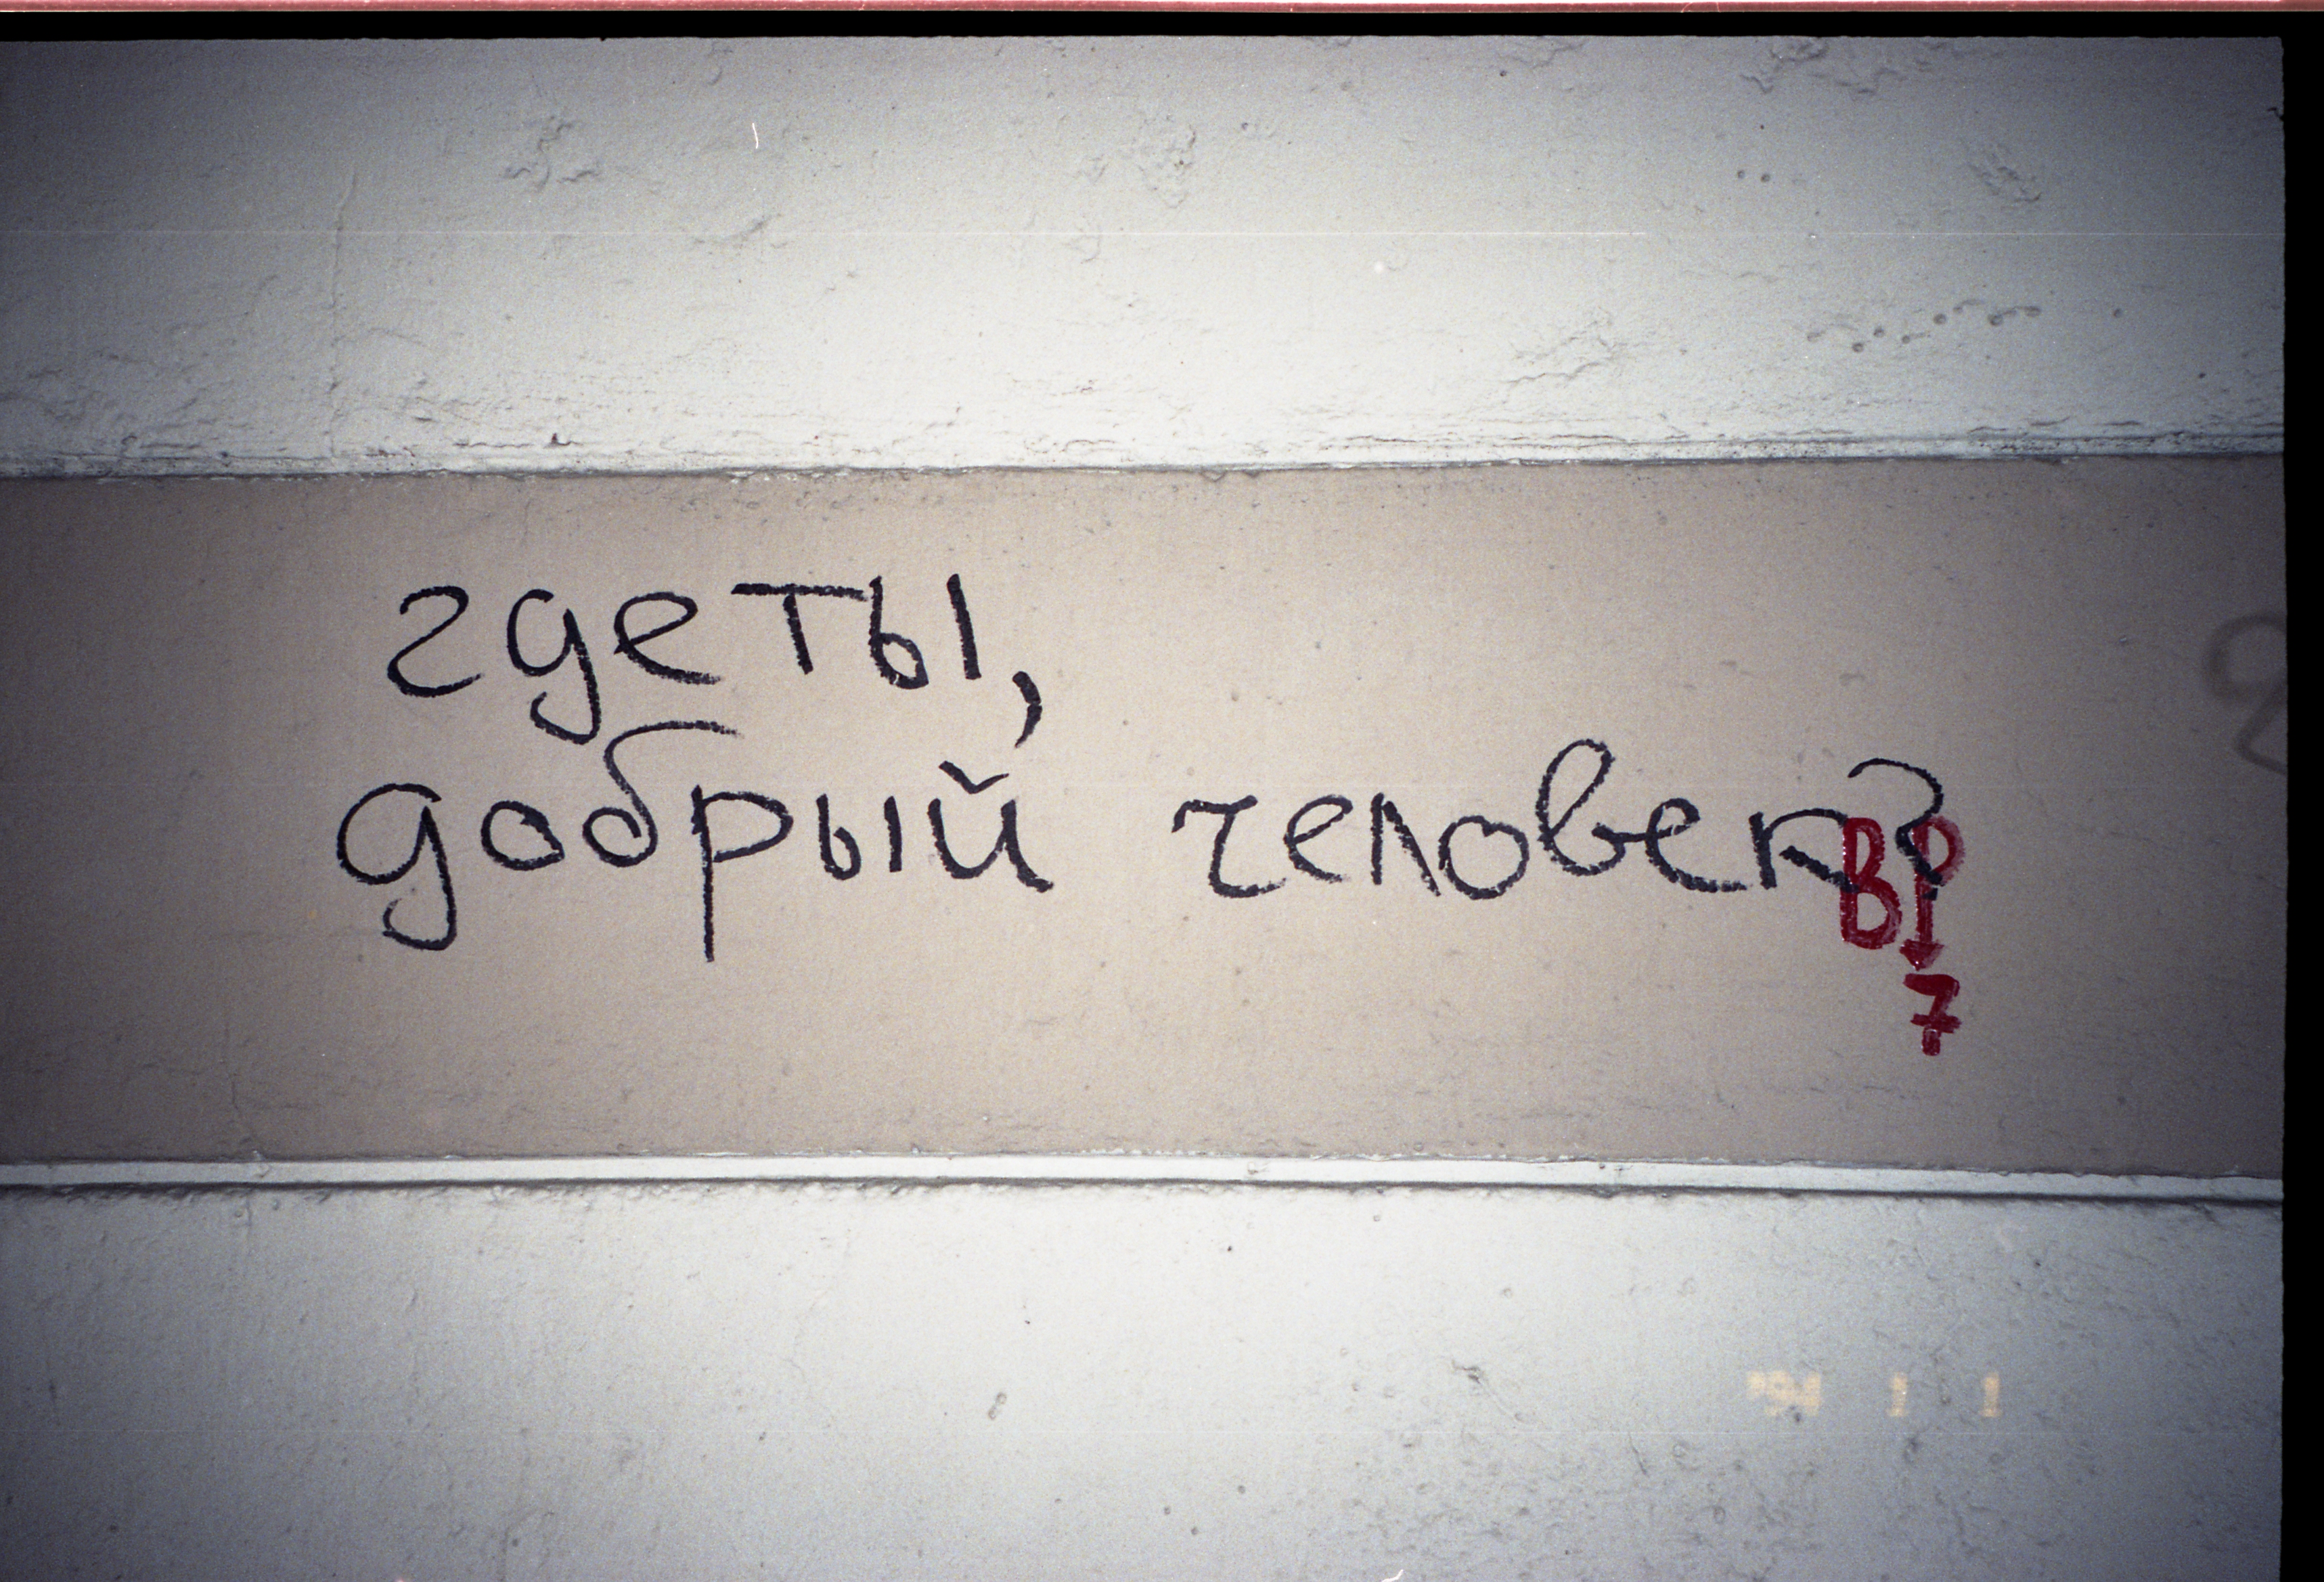 где ты,
добрый человек?
ВР
7
'94 1 1